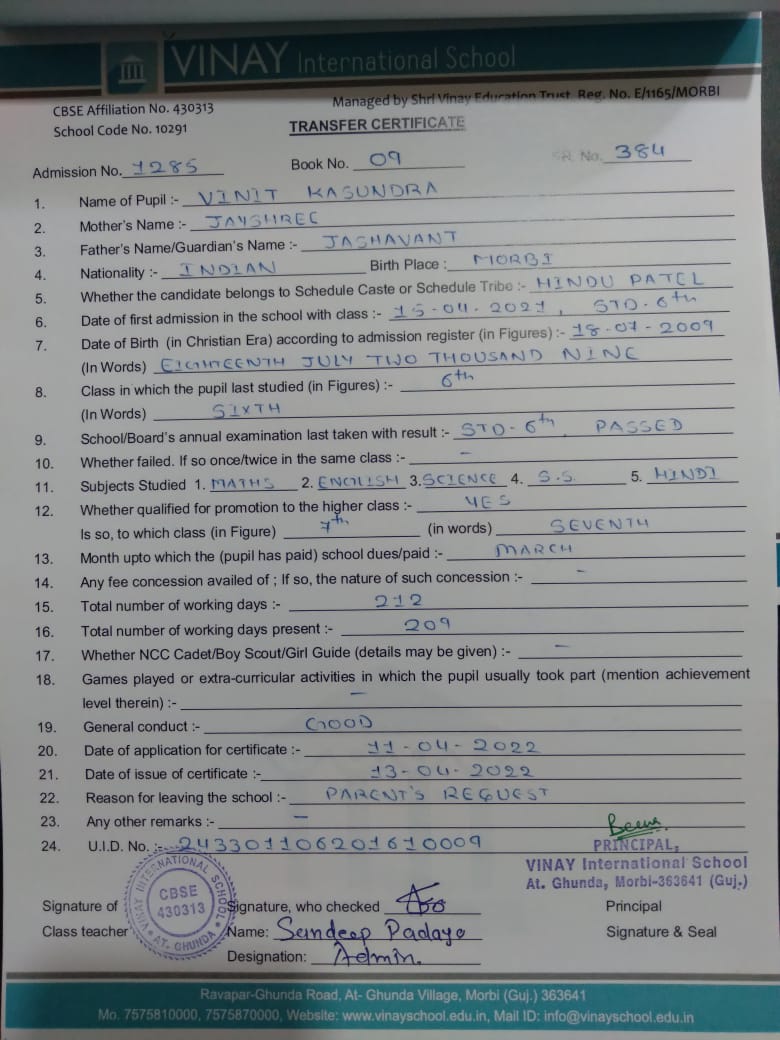 VINAY International School
CBSE Affiliation No. 430313
Managed by Shri Vinay Education Trust Reg. No. E/1165/MORBI
School Code No. 10291
TRANSFER CERTIFICATE
Admission No. 1285 Book No. 09 GR. No. 384
1. Name of Pupil :- VINIT KASUNDRA
2. Mother's Name :- JAYSHREE
3. Father's Name/Guardian's Name :- JASHAVANT
4. Nationality :- INDIAN Birth Place : MORBI
5. Whether the candidate belongs to Schedule Caste or Schedule Tribe :- HINDU PATEL
6. Date of first admission in the school with class :- 15-04-2021, STD-6th
7. Date of Birth (in Christian Era) according to admission register (in Figures) :- 18-07-2009
(In Words) EIGHTEENTH JULY TWO THOUSAND NINE
8. Class in which the pupil last studied (in Figures) :- 6th
(In Words) SIXTH
9. School/Board's annual examination last taken with result :- STD-6th, PASSED
10. Whether failed. If so once/twice in the same class :- -
11. Subjects Studied 1. MATHS 2. ENGLISH 3. SCIENCE 4. S.S. 5. HINDI
12. Whether qualified for promotion to the higher class :- YES
Is so, to which class (in Figure) 7th (in words) SEVENTH
13. Month upto which the (pupil has paid) school dues/paid :- MARCH
14. Any fee concession availed of ; If so, the nature of such concession :- -
15. Total number of working days :- 212
16. Total number of working days present :- 209
17. Whether NCC Cadet/Boy Scout/Girl Guide (details may be given) :- -
18. Games played or extra-curricular activities in which the pupil usually took part (mention achievement
level therein) :- -
19. General conduct :- GOOD
20. Date of application for certificate :- 11-04-2022
21. Date of issue of certificate :- 13-04-2022
22. Reason for leaving the school :- PARENT'S REQUEST
23. Any other remarks :- -
24. U.I.D. No. :- 243301106201610009
PRINCIPAL,
VINAY International School
At. Ghunda, Morbi-363641 (Guj.)
VINAY INTERNATIONAL SCHOOL
CBSE
430313
AT. GHUNDA
Signature of Signature, who checked Principal
Class teacher Name: Sandeep Padaya Signature & Seal
Designation: Admin.
Ravapar-Ghunda Road, At- Ghunda Village, Morbi (Guj.) 363641
Mo. 7575810000, 7575870000, Website: www.vinayschool.edu.in, Mail ID: info@vinayschool.edu.in